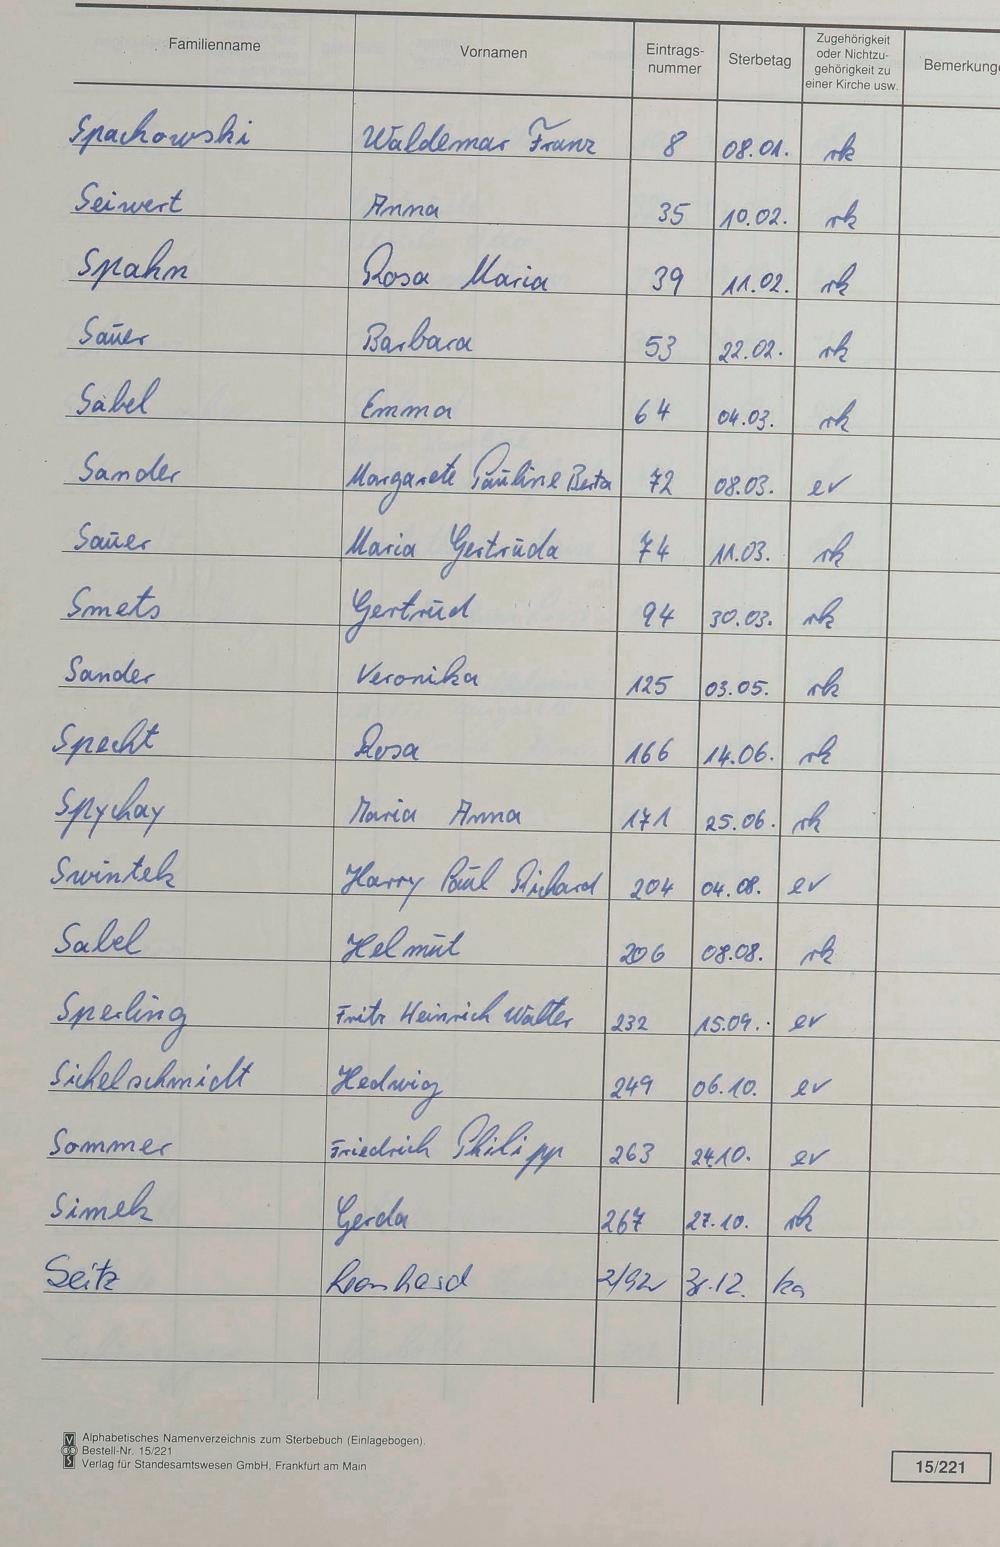 Familienname Vornamen Eintrags-nummer Sterbetag Zugehörigkeit oder Nichtzu-gehörigkeit zu einer Kirche usw. Bemerkunge
Spachowski Waldemar Franz 8 08.01. rk
Seiwert Anna 35 10.02. rk
Spahn Rosa Maria 39 11.02. rk
Sauer Barbara 53 22.02. rk
Sabel Emma 64 04.03. rk
Sander Margarete Pauline Berta 72 08.03. ev
Sauer Maria Gertruda 74 11.03. rk
Smets Gertrud 94 30.03. rk
Sander Veronika 125 03.05. rk
Specht Rosa 166 14.06. rk
Spychay Maria Anna 171 25.06. rk
Swintek Harry Paul Richard 204 04.08. ev
Sabel Helmut 206 08.08. rk
Sperling Fritz Heinrich Walter 232 15.09. ev
Sichelschmidt Hedwig 249 06.10. ev
Sommer Friedrich Philipp 263 24.10. ev
Simek Gerda 267 27.10. rk
Seitz Leonhard 2/92 31.12.
Alphabetisches Namenverzeichnis zum Sterbebuch (Einlagebogen).
Bestell-Nr. 15/221
Verlag für Standesamtswesen GmbH, Frankfurt am Main
15/221